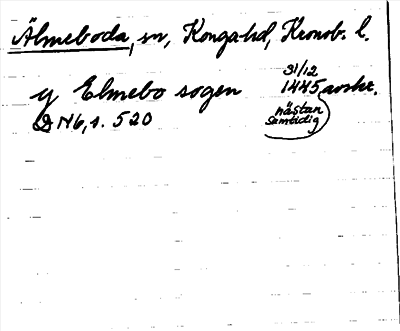 Älmeboda, sn, Konga hd, Kronob. l.
31/12
y Elmebo sogen 1445 avskr.
DN 6, s. 520 nästan
samtidig